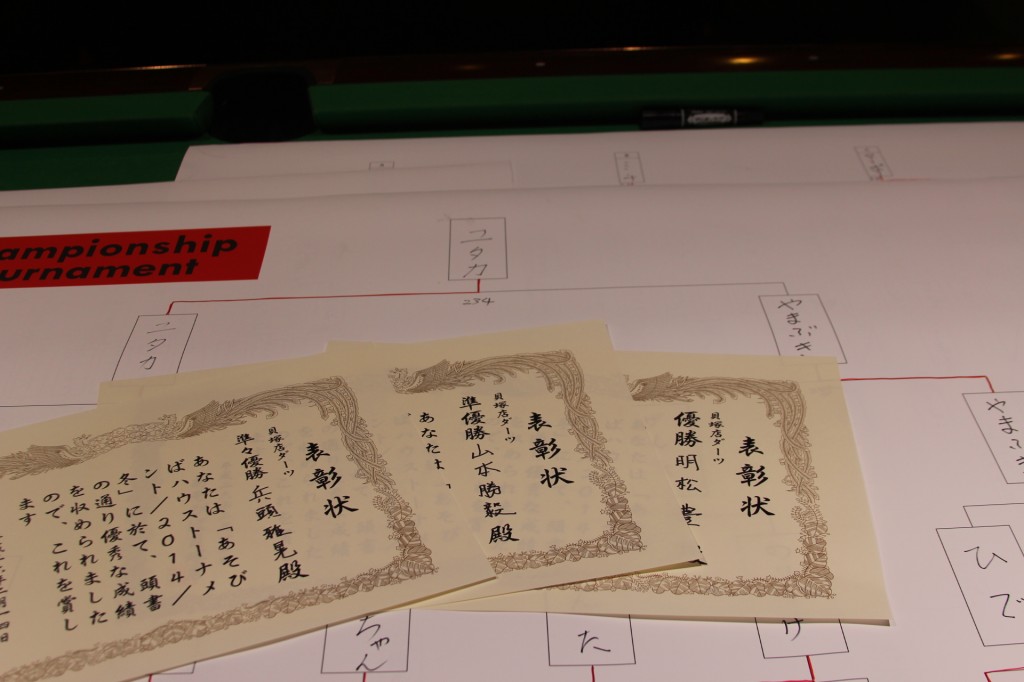 ampionship
urnament
ユタカ
234
ユタカ
やまぶき
やまぶき
表彰状
貝塚店ダーツ
優勝 明松 豊
表彰状
貝塚店ダーツ
準優勝 山本 勝毅 殿
あなたは
表彰状
貝塚店ダーツ
準々優勝 兵頭 雅晃 殿
あなたは「あそび
ばハウストーナメ
ント/2014/
冬」に於て、頭書
の通り優秀な成績
を収められました
ので、これを賞し
ます
ひで
ちゃん
た
け